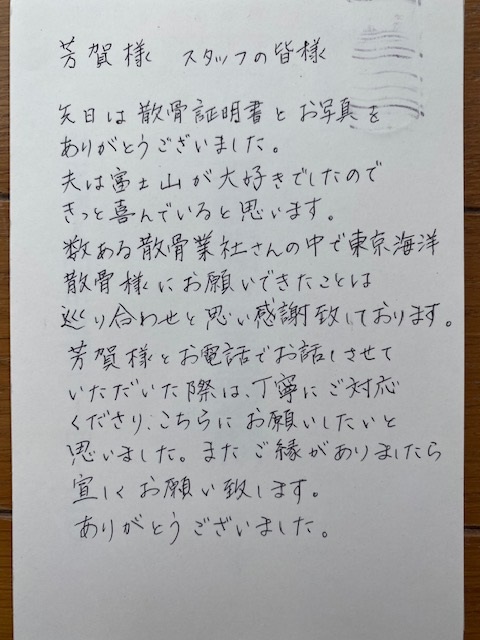 芳賀様　スタッフの皆様
矢日は散骨証明書とお写真を
ありがとうございました。
夫は富士山が大好きでしたので
きっと喜んでいると思います。
数ある散骨業社さんの中で東京海洋
散骨様にお願いできたことは
巡り合わせと思い感謝致しております。
芳賀様とお電話でお話しさせて
いただいた際は、丁寧にご対応
くださり、こちらにお願いしたいと
思いました。またご縁がありましたら
宜しくお願い致します。
ありがとうございました。